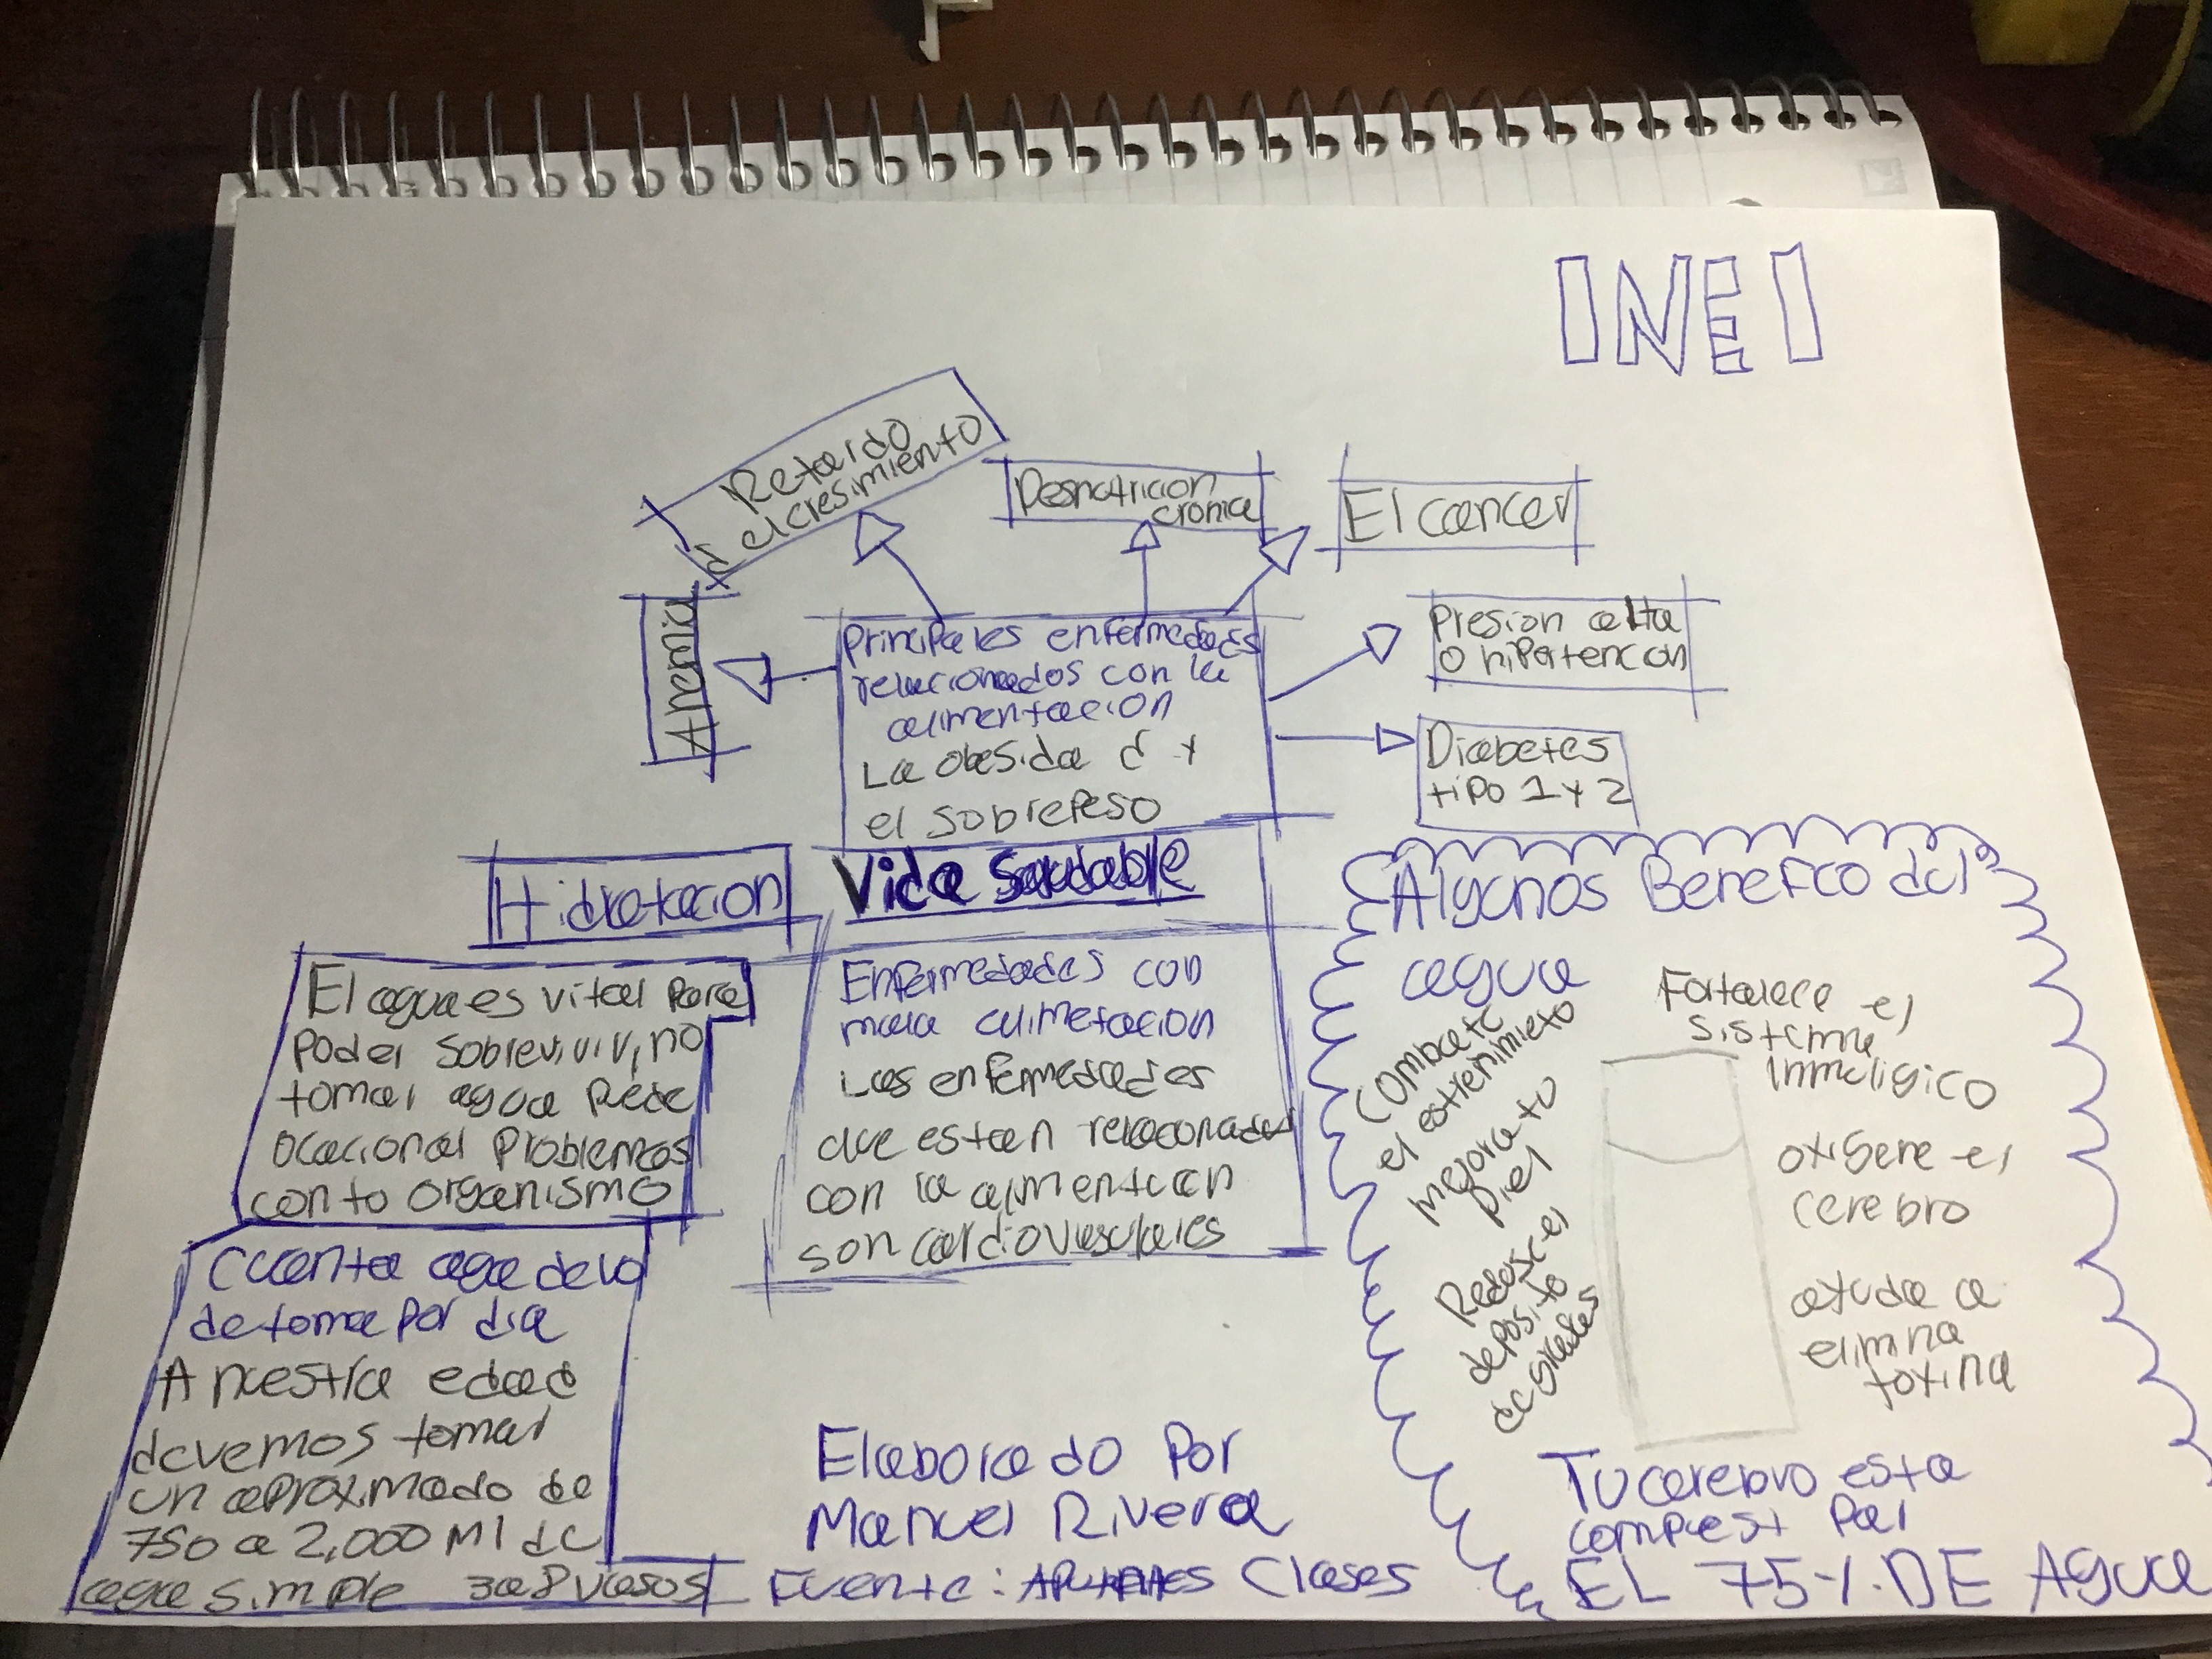 INEI
Retardo
d el cresimiento
Desnutricion
cronica
El cancer
Anemia
Principales enfermedades
relacionados con la
alimentacion
La obesidad y
el sobrepeso
Presion alta
o hipertencion
Diabetes
tipo 1 y 2
Hidratacion
Vida Saludable
El agua es vital para
poder sobrevivir, no
tomar agua Pede
ocacional Problemas
con tu organismo
Cuanta agua devo
de toma por dia
A nuestra edad
devemos tomar
un aproximado de
750 a 2,000 Ml de
agua simple 3 a 8 vasos
Enfermedades con
mala alimetacion
Las enfermedades
que estan relacionadas
con la alimentacion
son cardiovasculares
Elaborado Por
Manuel Rivera
Fuente: Apuntes Clases
Algunos Benefico del
agua
Combate
el estrenimieto
mejora tu
piel
deposito
de grates
Fortalece el
sistema
oxigene el
cerebro
ayuda a
elimina
toxina
Tu cerebro esta
compuest Por
EL 75%. DE Agua